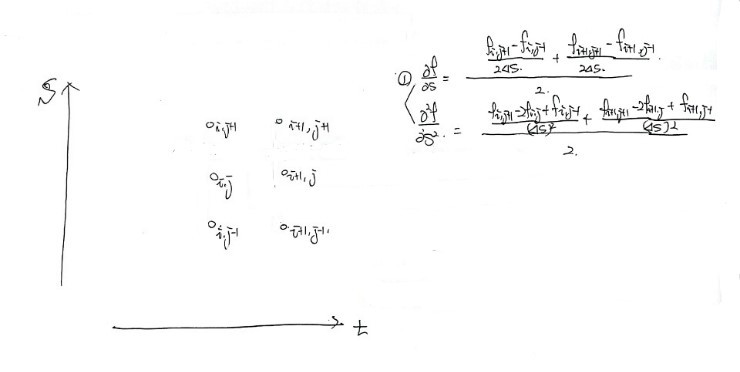 S
i,j+1 i+1,j+1
i,j i+1,j
i,j-1 i+1,j-1
t
① ∂f/∂S = ((f_{i,j+1} - f_{i,j-1})/2ΔS + (f_{i+1,j+1} - f_{i+1,j-1})/2ΔS)/2
∂²f/∂S² = ((f_{i,j+1} - 2f_{i,j} + f_{i,j-1})/(ΔS)² + (f_{i+1,j+1} - 2f_{i+1,j} + f_{i+1,j-1})/(ΔS)²)/2